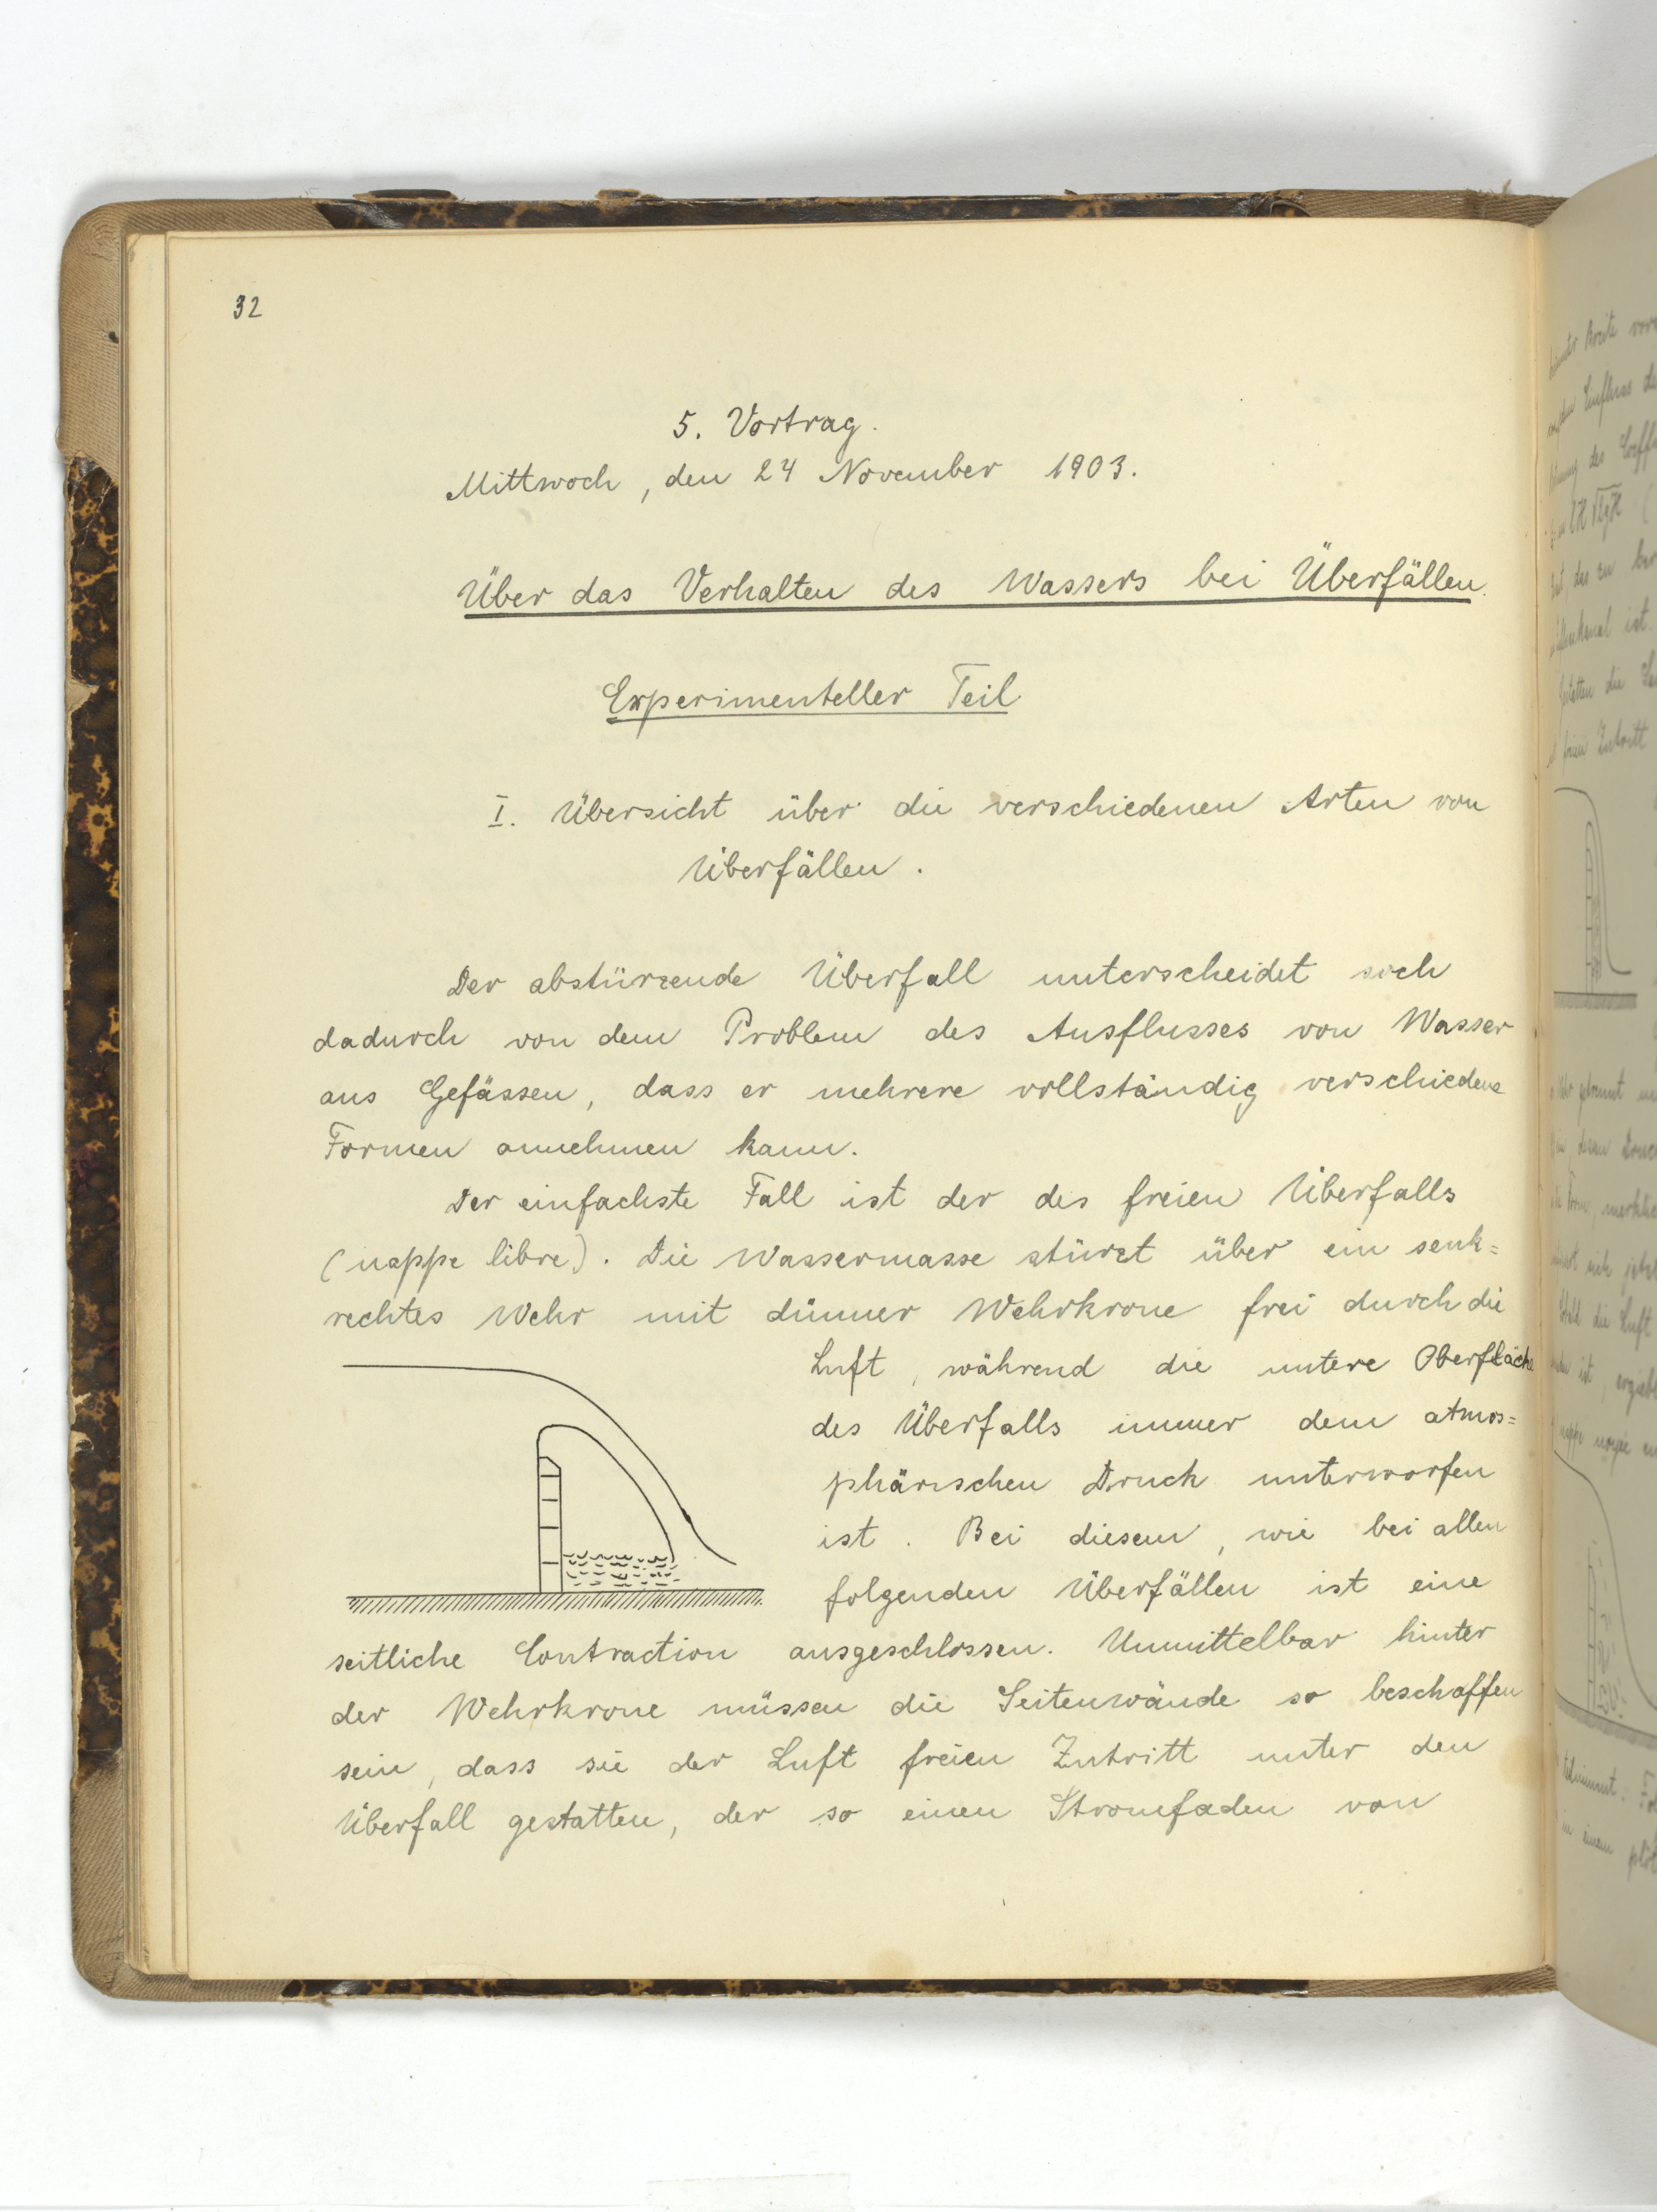 32
5. Vortrag.
Mittwoch, den 24 November 1903.
Über das Verhalten des Wassers bei Überfällen.
Experimenteller Teil
I. Übersicht über die verschiedenen Arten von
Überfällen.
Der abstürzende Überfall unterscheidet sich
dadurch von dem Problem des Ausflusses von Wasser
aus Gefässen, dass er mehrere vollständig verschiedene
Formen annehmen kann.
Der einfachste Fall ist der des freien Überfalls
(nappe libre). Die Wassermasse stürzt über ein senk=
rechtes Wehr mit dünner Wehrkrone frei durch die
Luft, während die untere Oberfläche
des Überfalls immer dem atmos=
phärischen Druck unterworfen
ist. Bei diesem, wie bei allen
folgenden Überfällen ist eine
seitliche Contraction ausgeschlossen. Unmittelbar hinter
der Wehrkrone müssen die Seitenwände so beschaffen
sein, dass sie der Luft freien Zutritt unter den
Überfall gestatten, der so einen Stromfaden von